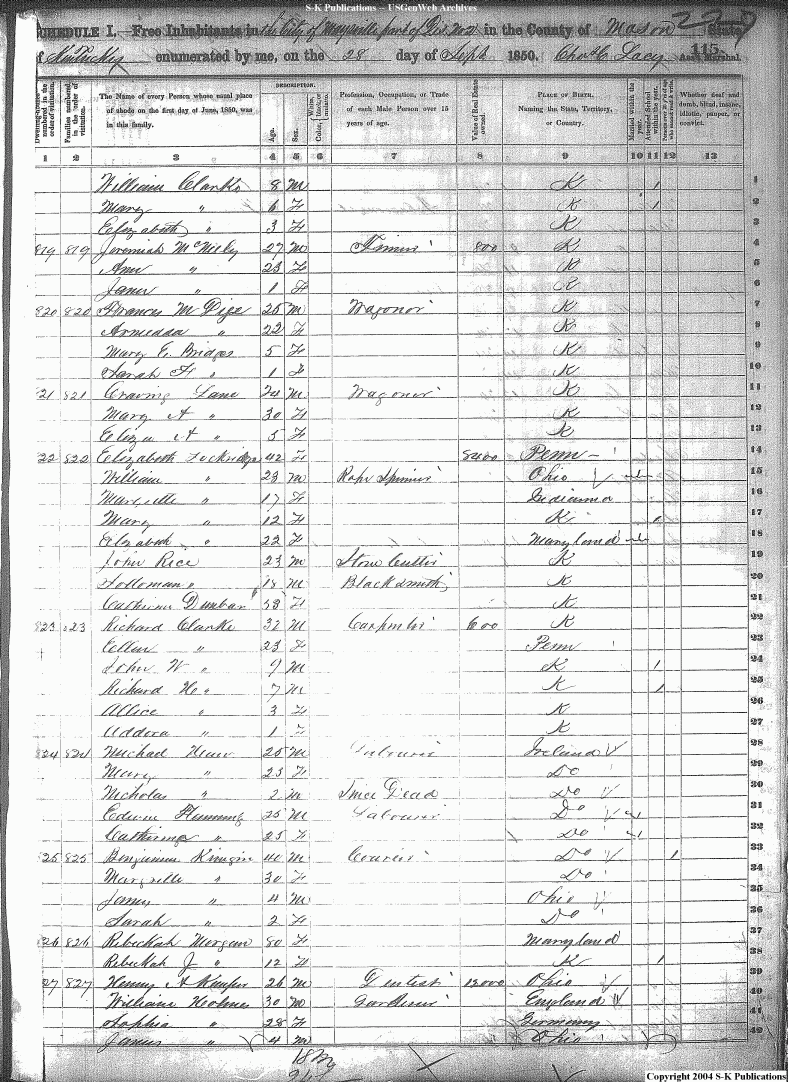 S-K Publications -- USGenWeb Archives
SCHEDULE I. Free Inhabitants in the City of Maysville part of Dis. No 2 in the County of Mason State
229
of Kentucky enumerated by me, on the 28 day of Sept 1850. Chas C. Lacy Ass't Marshal.
115
Dwelling-houses numbered in the order of visitation.
Families numbered in the order of visitation.
The Name of every Person whose usual place of abode on the first day of June, 1850, was in this family.
DESCRIPTION.
Age.
Sex.
White, Color, black, or mulatto.
Profession, Occupation, or Trade of each Male Person over 15 years of age.
Value of Real Estate owned.
PLACE OF BIRTH. Naming the State, Territory, or Country.
Married within the year.
Attended School within the year.
Whether deaf and dumb, blind, insane, idiotic, pauper, or convict.
1 2 3 4 5 6 7 8 9 10 11 12 13
William Clarke 8 M K 1 1
Mary " 6 F K 1 2
Elizabeth " 3 F K 3
819 819 Jeremiah McNeely 27 M 800 K 4
Ann " 23 F K 5
" 1 F K 6
820 820 Francis M 25 M Wagoner K 7
" 22 F K 8
Mary E. Bridges 5 F K 9
Sarah F " 1 F K 10
21 821 Lane 24 M Wagoner K 11
Mary A " 30 F K 12
Eliza A " 5 F K 13
22 822 Elizabeth Lockridge 42 F Penn 14
William " 23 M Rope Spinner Ohio 15
" 17 F Indianna 16
Mary " 12 F K 1 17
Elizabeth " 22 F Maryland 18
John Rice 23 M Stone Cutter K 19
" M Blacksmith K 20
Catherine Dunbar F K 21
823 823 Richard Clarke 32 M Carpenter 600 K 22
Ellen " 23 F Penn 23
John W " 9 M K 1 24
Richard H " 7 M K 1 25
Allice " 3 F K 26
Addora " 1 F K 27
824 824 Michael 25 M Labourer Ireland 28
Mary " 23 F Do 29
Nicholas " 2 M Since Dead Do 30
Flemming 25 M Labourer Do 31
Catherine " 25 F Do 32
825 825 Benjamin 40 M Do 1 33
" 30 F Do
James " 4 M Ohio 35
Sarah " 2 F Do 36
826 826 Rebeckah Morgan 80 F Maryland 37
Rebeckah J " 12 F K 1 38
27 827 Henry A 26 M Dentist 12000 Ohio 39
William Holmes 30 M Gardener England 40
Sophia " 28 F Germany 41
James " 4 M Ohio 42
18 M
Copyright 2004 S-K Publications